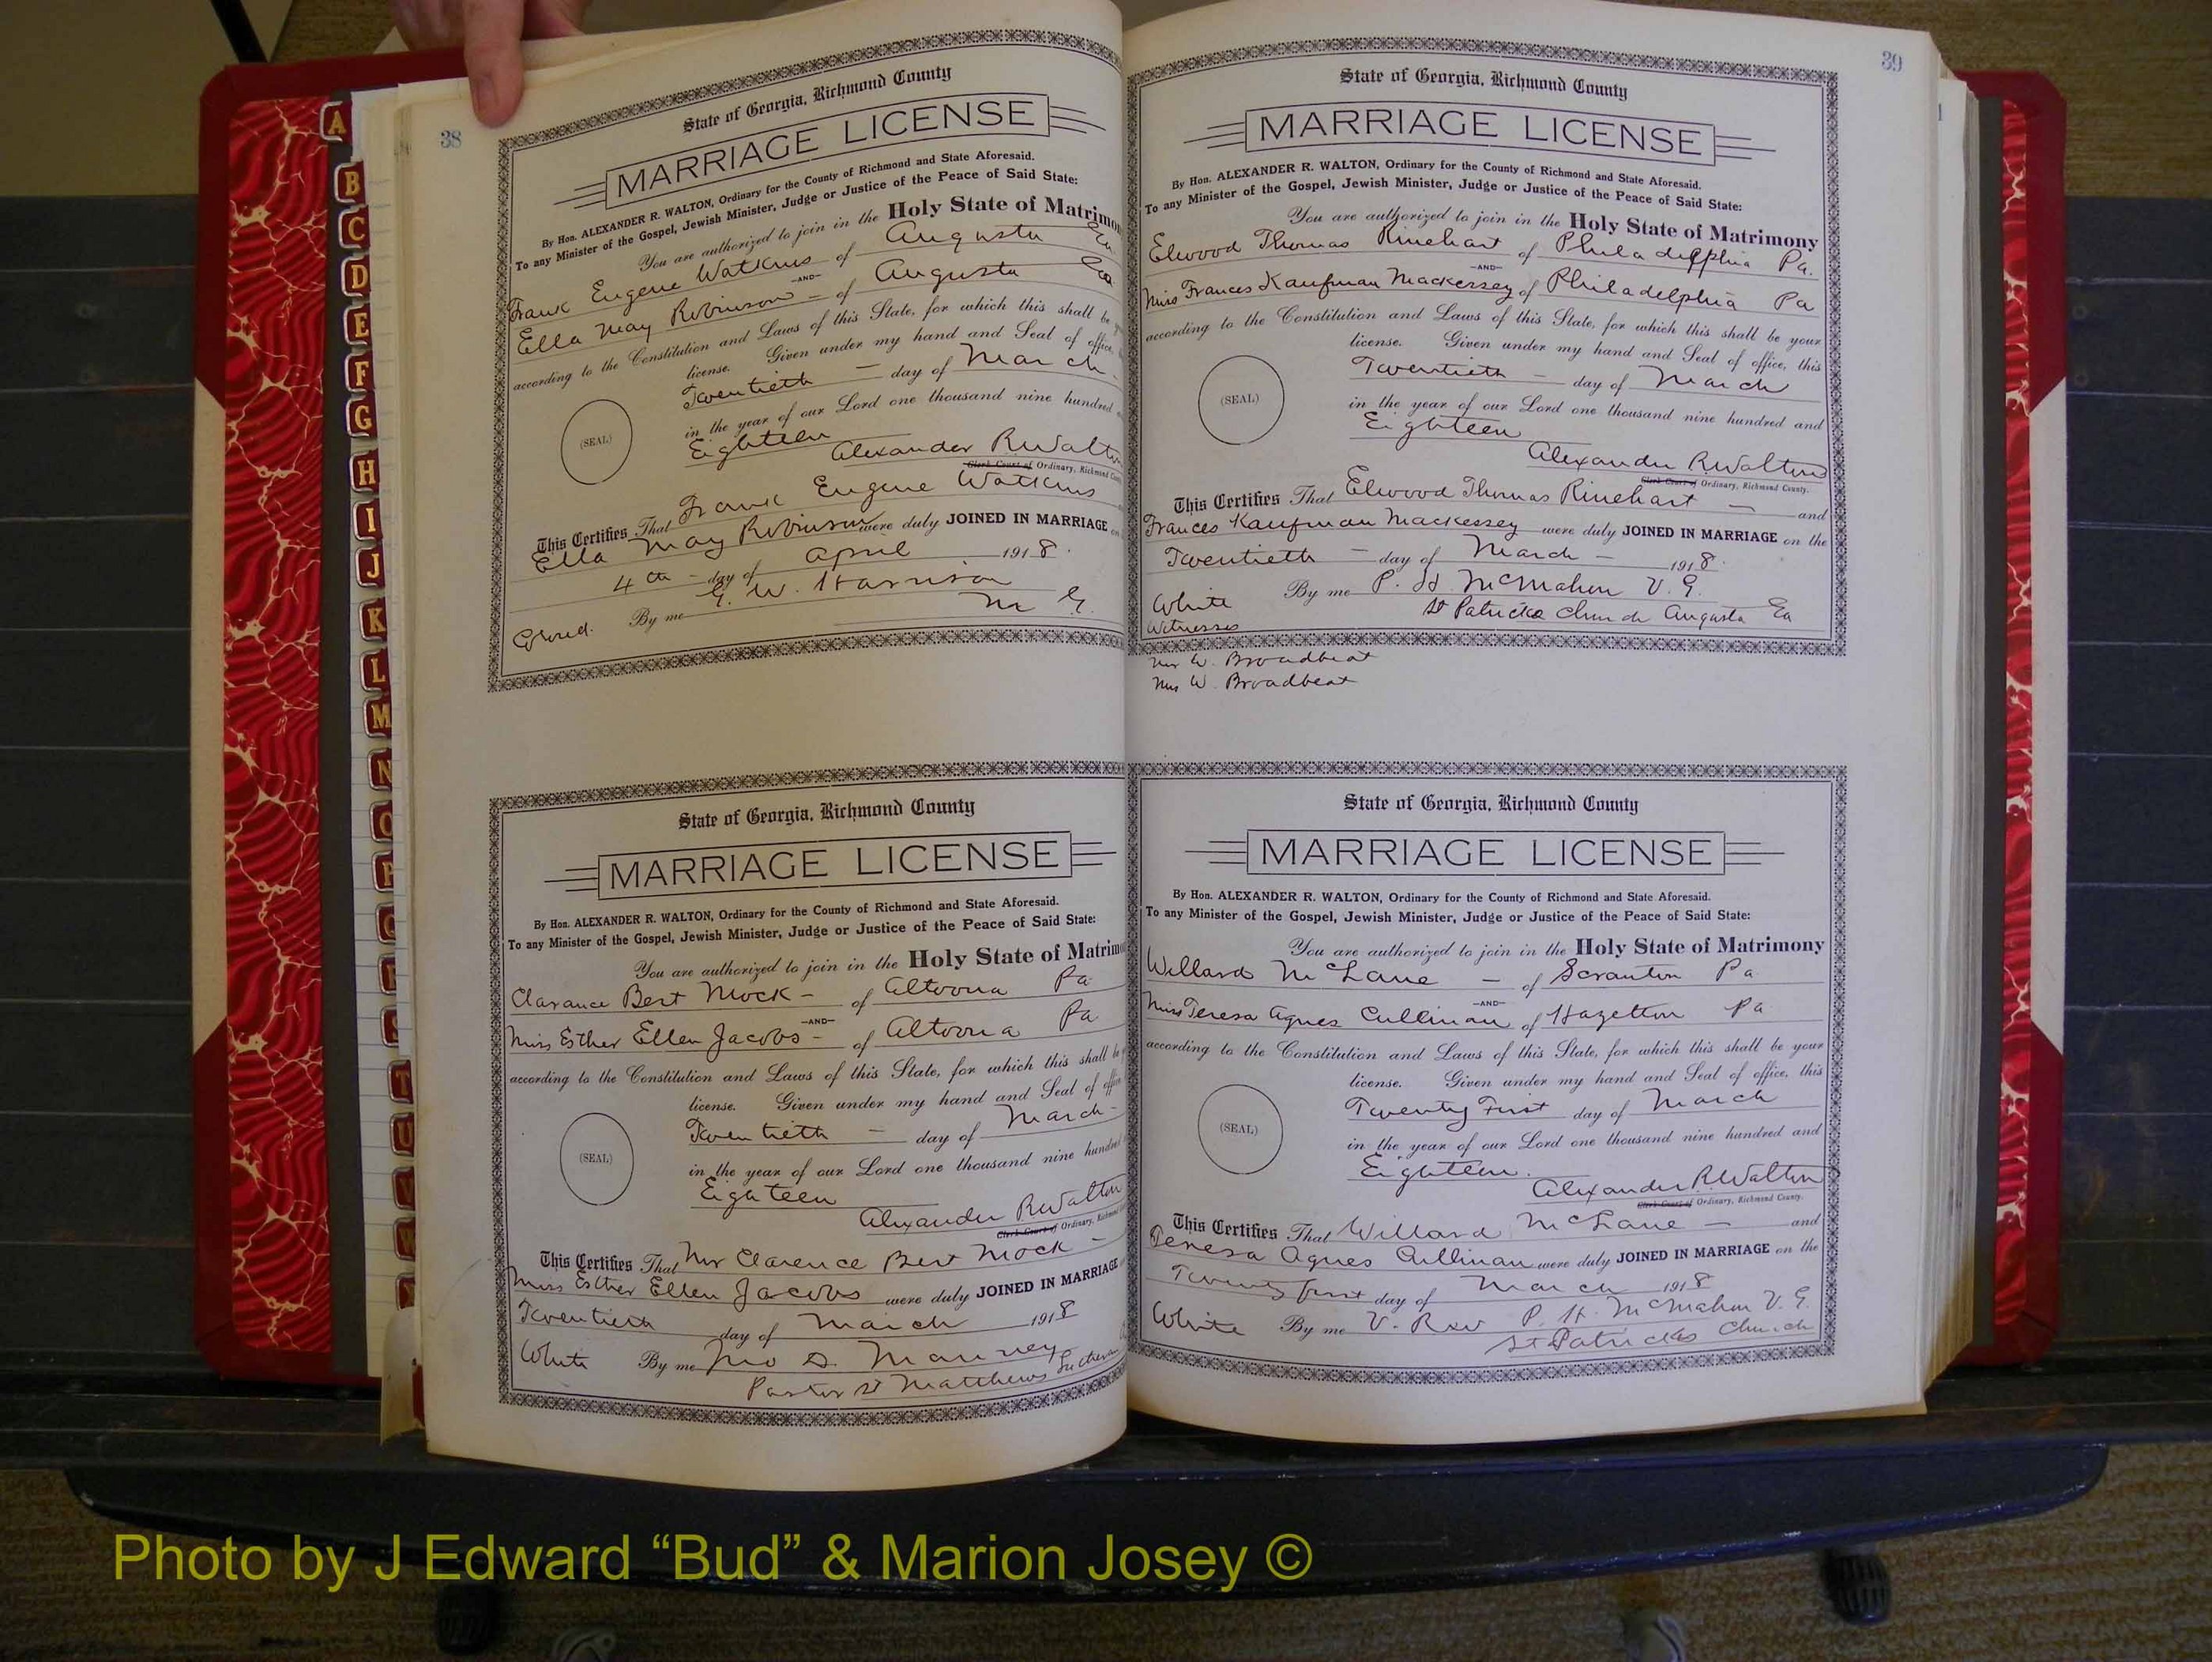 38
State of Georgia, Richmond County
MARRIAGE LICENSE
By Hon. ALEXANDER R. WALTON, Ordinary for the County of Richmond and State Aforesaid.
To any Minister of the Gospel, Jewish Minister, Judge or Justice of the Peace of Said State:
You are authorized to join in the Holy State of Matrimon
Frank Eugene Watkins of Augusta Ga
—AND—
Ella May Robinson – of Augusta Ga
according to the Constitution and Laws of this State, for which this shall be
license. Given under my hand and Seal of office,
Twentieth – day of March
(SEAL)
in the year of our Lord one thousand nine hundred
Eighteen
Alexander R Walton
Clerk Court of Ordinary, Richmond
This Certifies That Frank Eugene Watkins
Ella May Robinson were duly JOINED IN MARRIAGE on
4th – day of April 1918.
Colored. By me G. W. Harrison
M G.
State of Georgia, Richmond County
MARRIAGE LICENSE
By Hon. ALEXANDER R. WALTON, Ordinary for the County of Richmond and State Aforesaid.
To any Minister of the Gospel, Jewish Minister, Judge or Justice of the Peace of Said State:
You are authorized to join in the Holy State of Matrimo
Clarance Bert Mock – of Altoona Pa
—AND—
Miss Esther Ellen Jacobs – of Altoona Pa
according to the Constitution and Laws of this State, for which this shall be
license. Given under my hand and Seal of office
Twentieth – day of March –
(SEAL)
in the year of our Lord one thousand nine hundred
Eighteen
Alexander R Walton
Clerk Court of Ordinary, Richmond
This Certifies That Mr Clarence Bert Mock –
Miss Esther Ellen Jacobs were duly JOINED IN MARRIAGE
Twentieth day of March 1918
White By me Jno D. Mauney
Pastor St Matthews Lutheran
39
State of Georgia, Richmond County
MARRIAGE LICENSE
By Hon. ALEXANDER R. WALTON, Ordinary for the County of Richmond and State Aforesaid.
To any Minister of the Gospel, Jewish Minister, Judge or Justice of the Peace of Said State:
You are authorized to join in the Holy State of Matrimony
Elwood Thomas Rinehart of Philadelphia Pa.
—AND—
Miss Frances Kaufman Mackessey of Philadelphia Pa
according to the Constitution and Laws of this State, for which this shall be your
license. Given under my hand and Seal of office, this
Twentieth – day of March
(SEAL)
in the year of our Lord one thousand nine hundred and
Eighteen
Alexander R. Walton
Clerk Court of Ordinary, Richmond County.
This Certifies That Elwood Thomas Rinehart – and
Frances Kaufman Mackessey were duly JOINED IN MARRIAGE on the
Twentieth – day of March – 1918.
White By me P. H. McMahon V. G.
St Patricks Church Augusta Ga
Witnesses
Mr W. Broadbeat
Mrs W. Broadbeat
State of Georgia, Richmond County
MARRIAGE LICENSE
By Hon. ALEXANDER R. WALTON, Ordinary for the County of Richmond and State Aforesaid.
To any Minister of the Gospel, Jewish Minister, Judge or Justice of the Peace of Said State:
You are authorized to join in the Holy State of Matrimony
Willard McLane – of Scranton Pa
—AND—
Miss Teresa Agnes Cullinan of Hazelton Pa
according to the Constitution and Laws of this State, for which this shall be your
license. Given under my hand and Seal of office, this
Twenty First day of March
(SEAL)
in the year of our Lord one thousand nine hundred and
Eighteen.
Alexander R. Walton
Clerk Court of Ordinary, Richmond County.
This Certifies That Willard McLane – and
Teresa Agnes Cullinan were duly JOINED IN MARRIAGE on the
Twenty first day of March 1918
White By me V. Rev P. H. McMahon V. G.
St Patricks Church
A
B
C
D
E
F
G
H
I
J
K
L
M
N
O
P
T
U
Photo by J Edward “Bud” & Marion Josey ©